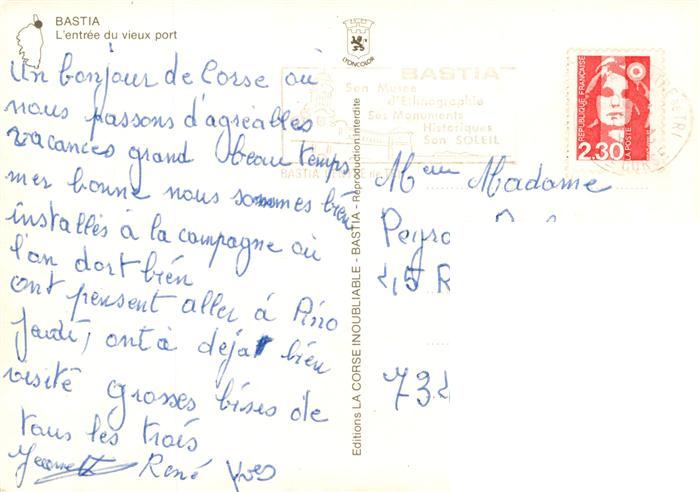 BASTIA
L'entrée du vieux port
Un bonjour de Corse où
nous passons d'agréables
vacances grand beau temps
mer bonne nous sommes bien
installés à la campagne où
l'on dort bien
ont pensent aller à Pino
jeudi, ont à déjà bien
visité grosses bises de
tous les trois
Jeannette René Yves
LYONCOLOR
Editions LA CORSE INOUBLIABLE - BASTIA - Reproduction interdite
BASTIA
Son Musée
d'Ethnographie
Ses Monuments
Historiques
Son SOLEIL
BASTIA
REPUBLIQUE FRANÇAISE
2.30
LA POSTE
Meur Madame
Peyro
45 R
73